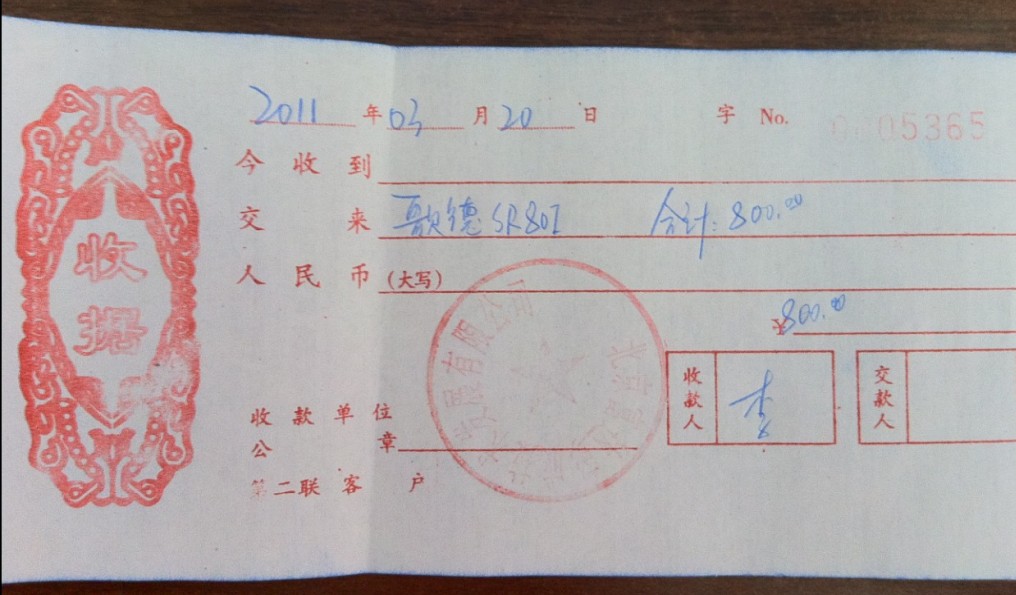 收据
2011 年 03 月 20 日 字 No. 0005365
今收到
交来 歌德 SR80I 合计: 800.00
人民币(大写)
¥800.00
收款人 李
交款人
收款单位
公章
第二联 客户